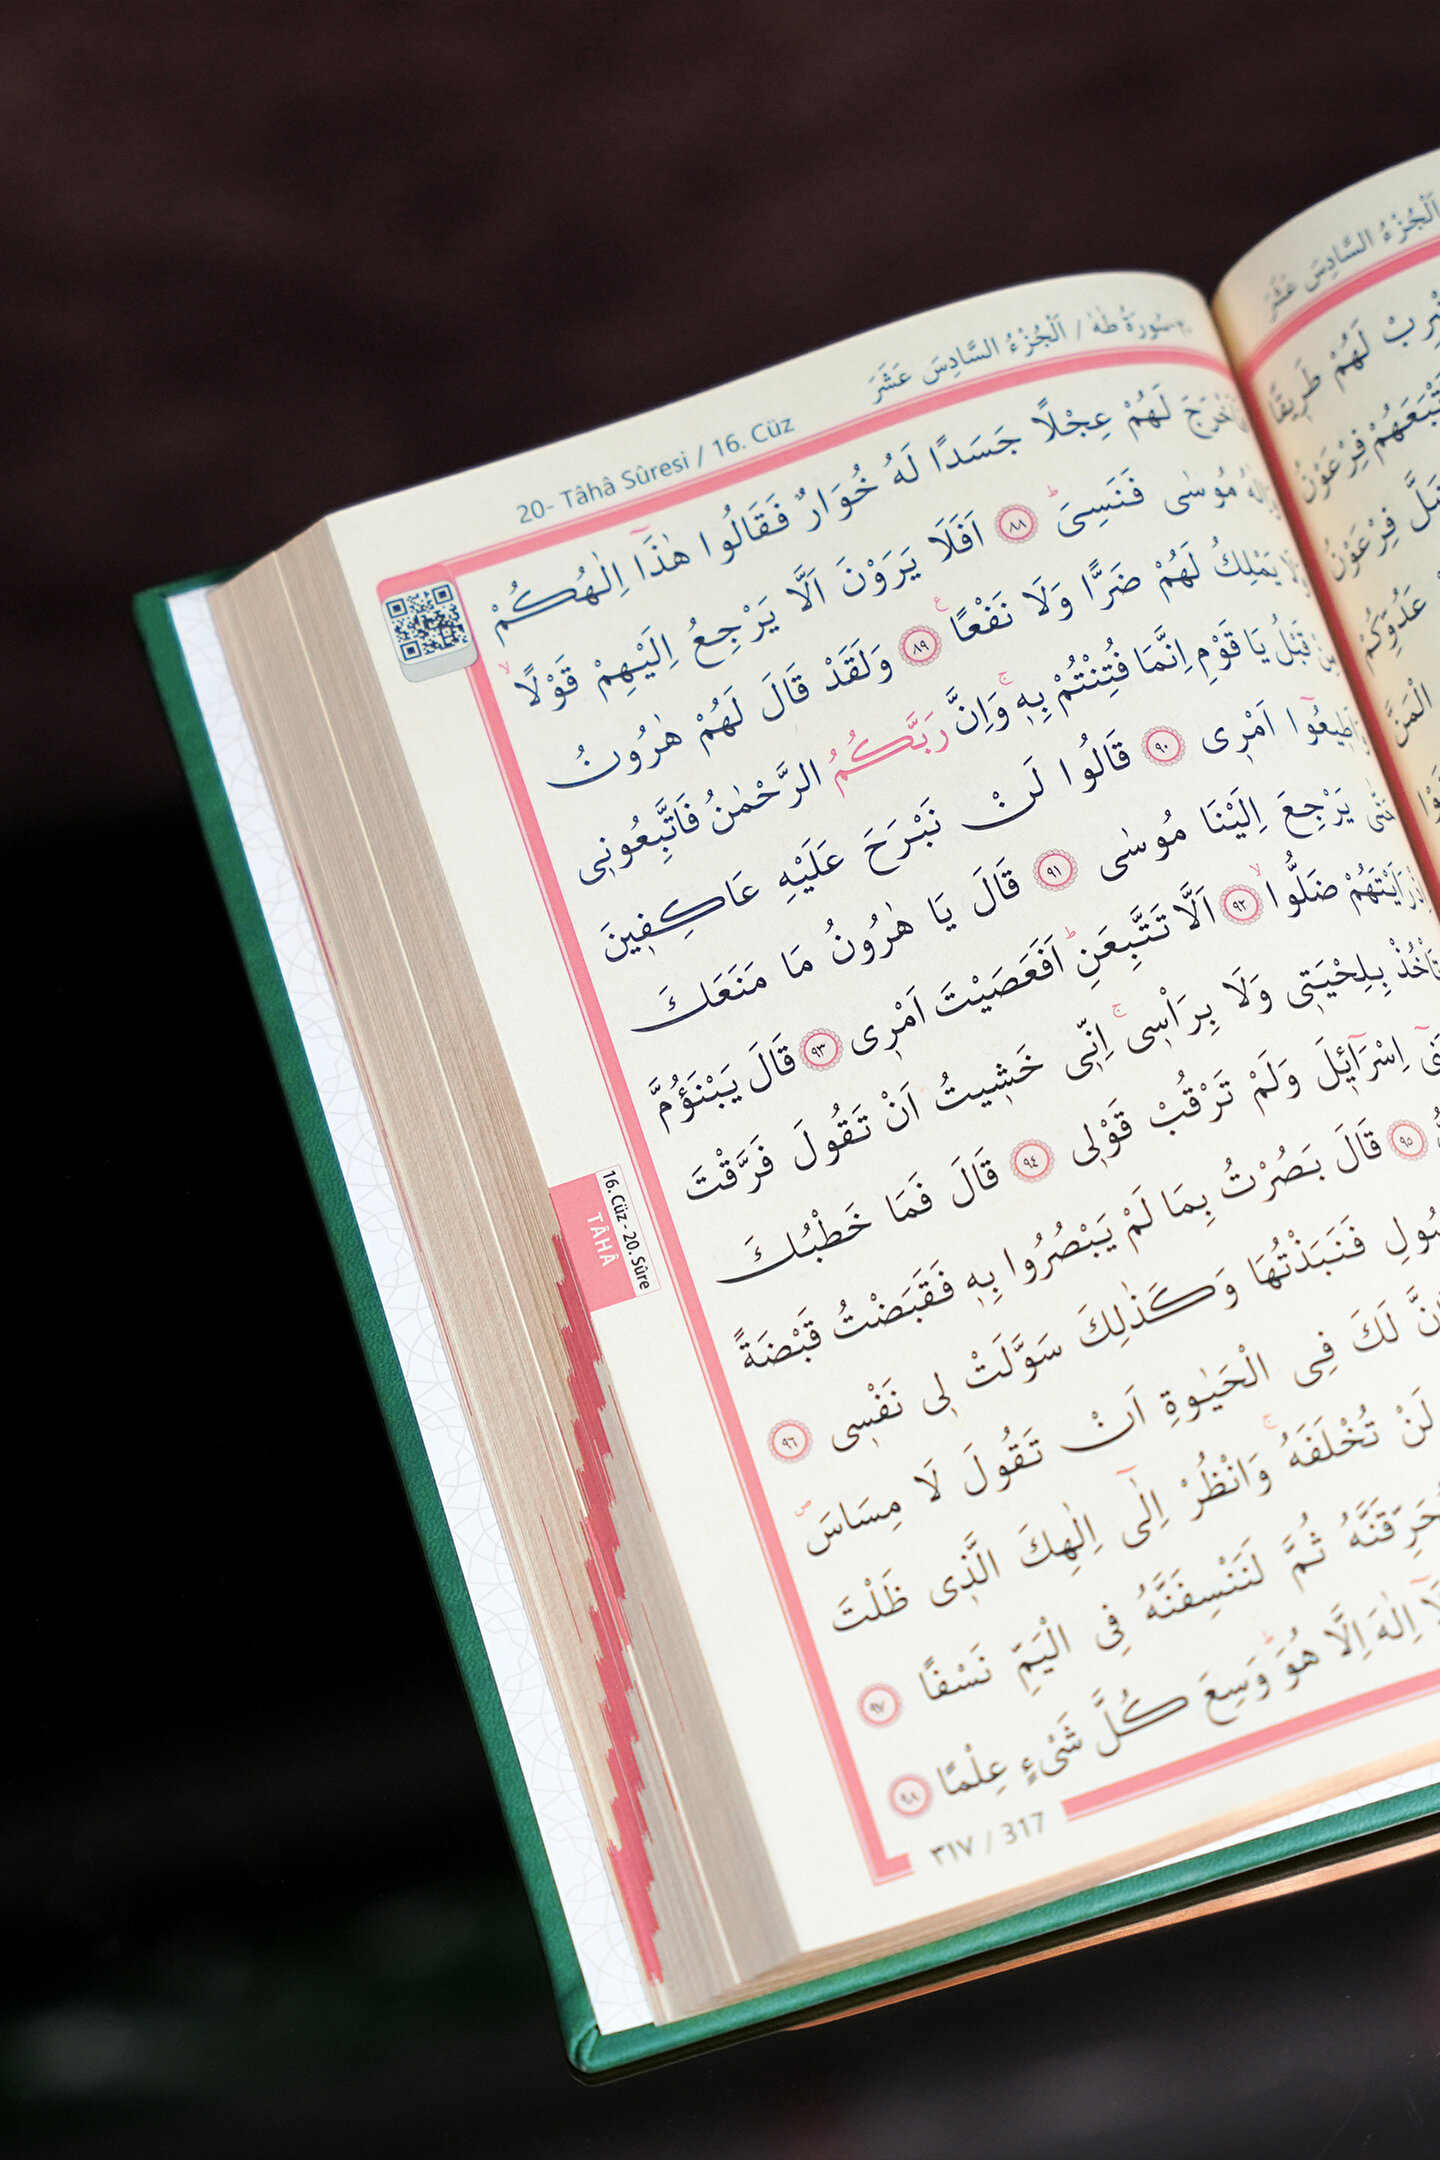 20- Tâhâ Sûresi / 16. Cüz
سُورَةُ طٰهٰ / اَلْجُزْءُ السَّادِسَ عَشَرَ
لَهُمْ عِجْلًا جَسَدًا لَهُ خُوَارٌ فَقَالُوا هٰذَٓا اِلٰهُكُمْ
مُوسٰى فَنَسِىَۜ ﴿٨٨﴾ اَفَلَا يَرَوْنَ اَلَّا يَرْجِعُ اِلَيْهِمْ قَوْلًاۙ
يَمْلِكُ لَهُمْ ضَرًّا وَلَا نَفْعًا۟ ﴿٨٩﴾ وَلَقَدْ قَالَ لَهُمْ هٰرُونُ
قَبْلُ يَا قَوْمِ اِنَّمَا فُتِنْتُمْ بِه۪ۚ وَاِنَّ رَبَّكُمُ الرَّحْمٰنُ فَاتَّبِعُون۪ى
اَمْر۪ى ﴿٩٠﴾ قَالُوا لَنْ نَبْرَحَ عَلَيْهِ عَاكِف۪ينَ
يَرْجِعَ اِلَيْنَا مُوسٰى ﴿٩١﴾ قَالَ يَا هٰرُونُ مَا مَنَعَكَ
رَاَيْتَهُمْ ضَلُّواۙ ﴿٩٢﴾ اَلَّا تَتَّبِعَنِۜ اَفَعَصَيْتَ اَمْر۪ى ﴿٩٣﴾ قَالَ يَبْنَؤُمَّ
تَأْخُذْ بِلِحْيَت۪ى وَلَا بِرَأْس۪ىۚ اِنّ۪ى خَش۪يتُ اَنْ تَقُولَ فَرَّقْتَ
اِسْرَٓائ۪لَ وَلَمْ تَرْقُبْ قَوْل۪ى ﴿٩٤﴾ قَالَ فَمَا خَطْبُكَ
﴿٩٥﴾ قَالَ بَصُرْتُ بِمَا لَمْ يَبْصُرُوا بِه۪ فَقَبَضْتُ قَبْضَةً
فَنَبَذْتُهَا وَكَذٰلِكَ سَوَّلَتْ ل۪ى نَفْس۪ى ﴿٩٦﴾
لَكَ فِى الْحَيٰوةِ اَنْ تَقُولَ لَا مِسَاسَۖ
لَنْ تُخْلَفَهُۚ وَانْظُرْ اِلٰٓى اِلٰهِكَ الَّذ۪ى ظَلْتَ
ثُمَّ لَنَنْسِفَنَّهُ فِى الْيَمِّ نَسْفًا ﴿٩٧﴾
اِلٰهَ اِلَّا هُوَۜ وَسِعَ كُلَّ شَىْءٍ عِلْمًا ﴿٩٨﴾
٣١٧ / 317
16. Cüz - 20. Sûre
TÂHÂ
اَلْجُزْءُ السَّادِسَ عَشَرَ
لَهُمْ طَر۪يقًا
فِرْعَوْنُ
فِرْعَوْنُ
عَدُوِّكُمْ
الْمَنَّ